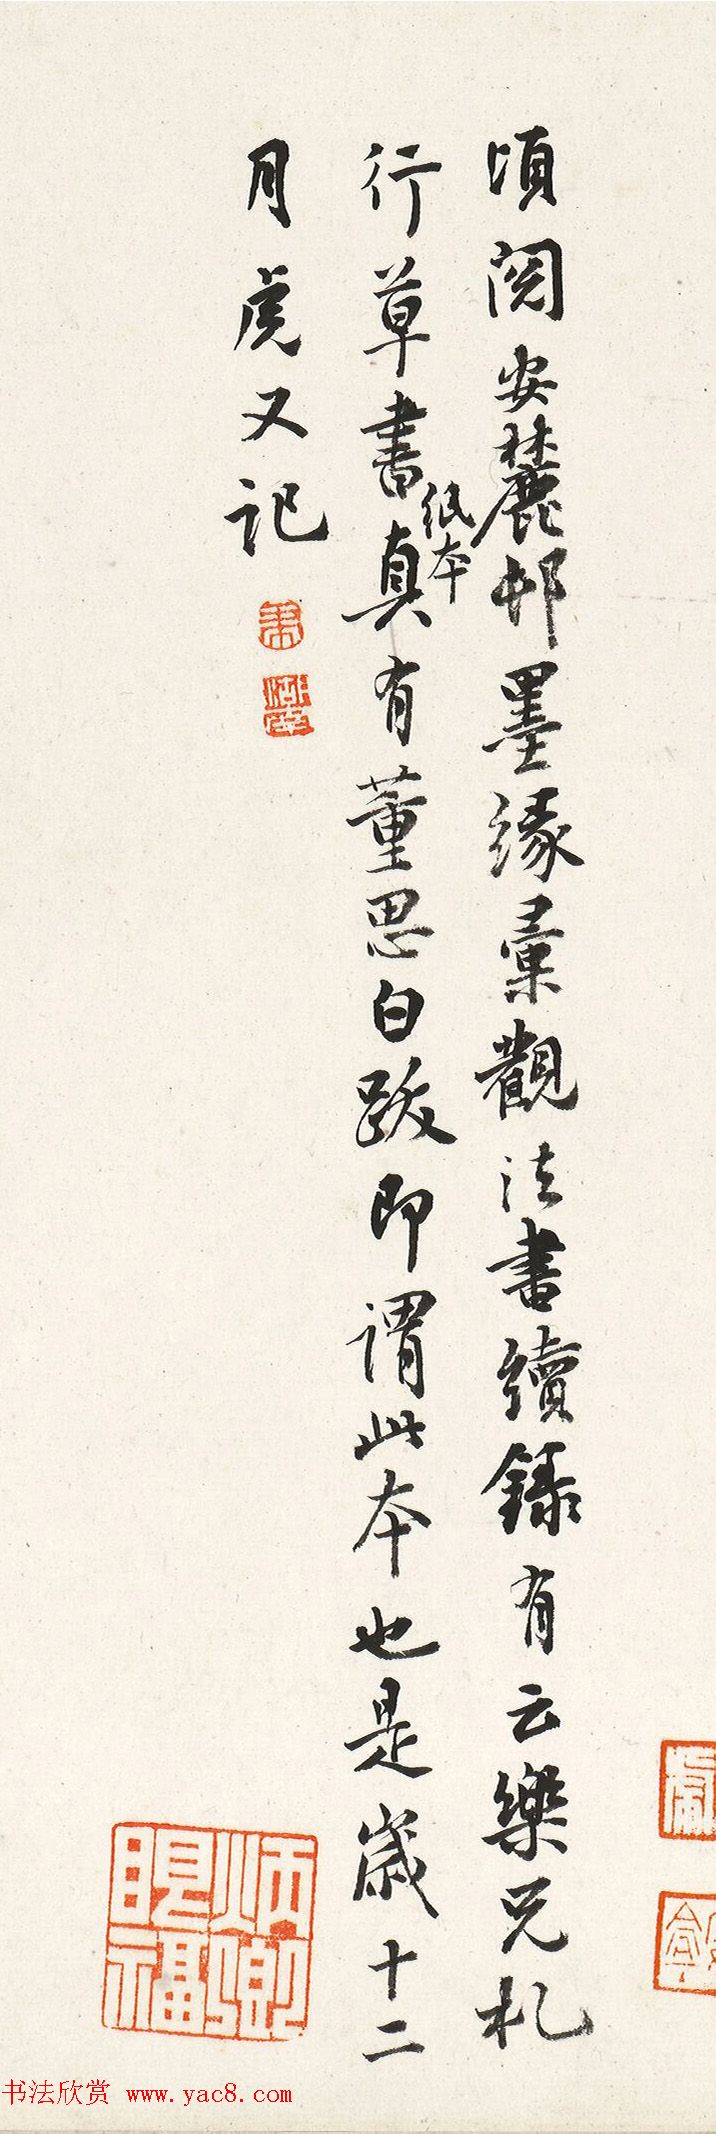 頃閱安麓邨墨緣彙觀法書續錄有云樂兄札
紙本
行草書真有董思白跋即謂此本也是歲十二
月虎又記
師卿眼福
书法欣赏 www.yac8.com